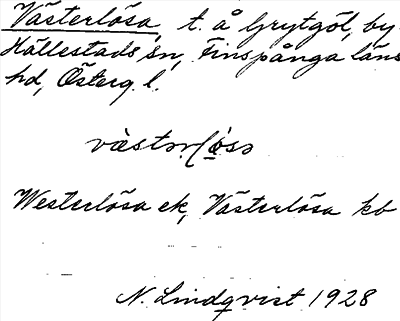 Västerlösa, t. å Grytgöl, by
Hällestads sn, Finspånga läns
hd, Österg. l.
væ̀stərlö́sa
Westerlösa ek, Västerlösa kb
N. Lindqvist 1928